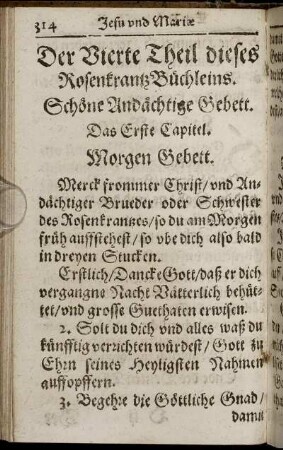 314 Jesu vnd Mariæ
Der Vierte Theil dieses
Rosenkrantz Büchleins.
Schöne Andächtige Gebett.
Das Erste Capitel.
Morgen Gebett.
Merck frommer Christ/ vnd An-
dächtiger Brueder oder Schwester
des Rosenkrantzes/ so du am Morgen
früh auffstehest/ so vbe dich also bald
in dreyen Stucken.
Erstlich/ Dancke Gott/ daß er dich
vergangne Nacht Vätterlich behüt-
tet/ vnd grosse Guethaten erwisen.
2. Solt du dich vnd alles waß du
künfftig verrichten würdest/ Gott zu
Ehrn seines Heyligsten Nahmen
auffopffern.
3. Begehre die Göttliche Gnad/
damit